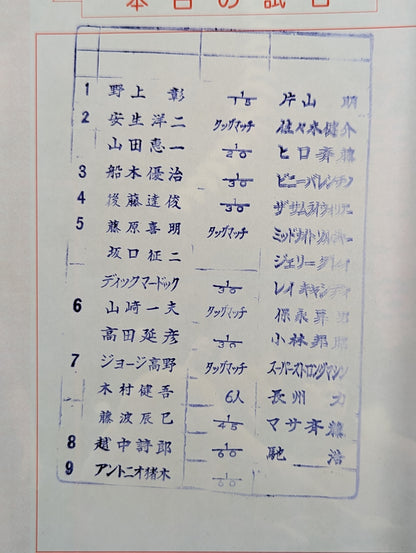 本日の試合
1 野上 彰 1/15 片山 明
2 安生洋二 タッグマッチ 佐々木健介
山田恵一 1/20 ヒロ斉藤
3 船木優治 1/30 ビニーバレンチノ
4 後藤達俊 1/30
5 藤原喜明 タッグマッチ ミッドナイトソルジャー
坂口征二 ジェリーグレイ
ディックマードック 1/30 レイキャンディ
6 山崎一夫 タッグマッチ 保永昇男
高田延彦 1/30 小林邦昭
7 ジョージ高野 タッグマッチ スーパーストロングマシン
木村健吾 6人 長州 力
藤波辰巳 1/45 マサ斉藤
8 越中詩郎 1/60 馳 浩
9 アントニオ猪木 1/60